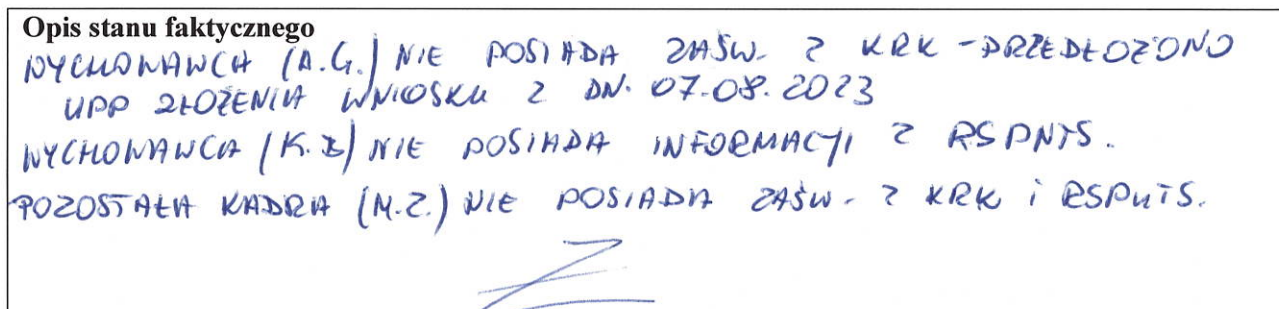 Opis stanu faktycznego
WYCHOWAWCA (A.G.) NIE POSIADA ZAŚW. Z KRK - PRZEDŁOŻONO
UPP ZŁOŻENIA WNIOSKU Z DN. 07.08.2023
WYCHOWAWCA (K.B) NIE POSIADA INFORMACJI Z RSPNTS.
POZOSTAŁA KADRA (M.Z.) NIE POSIADA ZAŚW. Z KRK i RSPNTS.